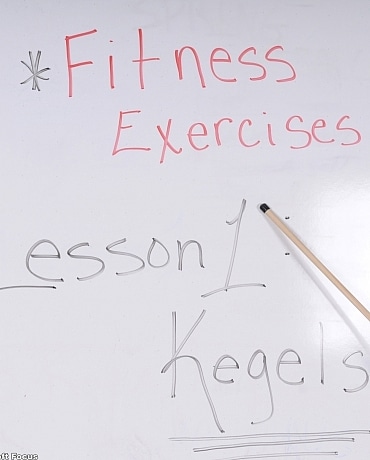 * Fitness
Exercises
Lesson 1:
Kegels
ft Focus